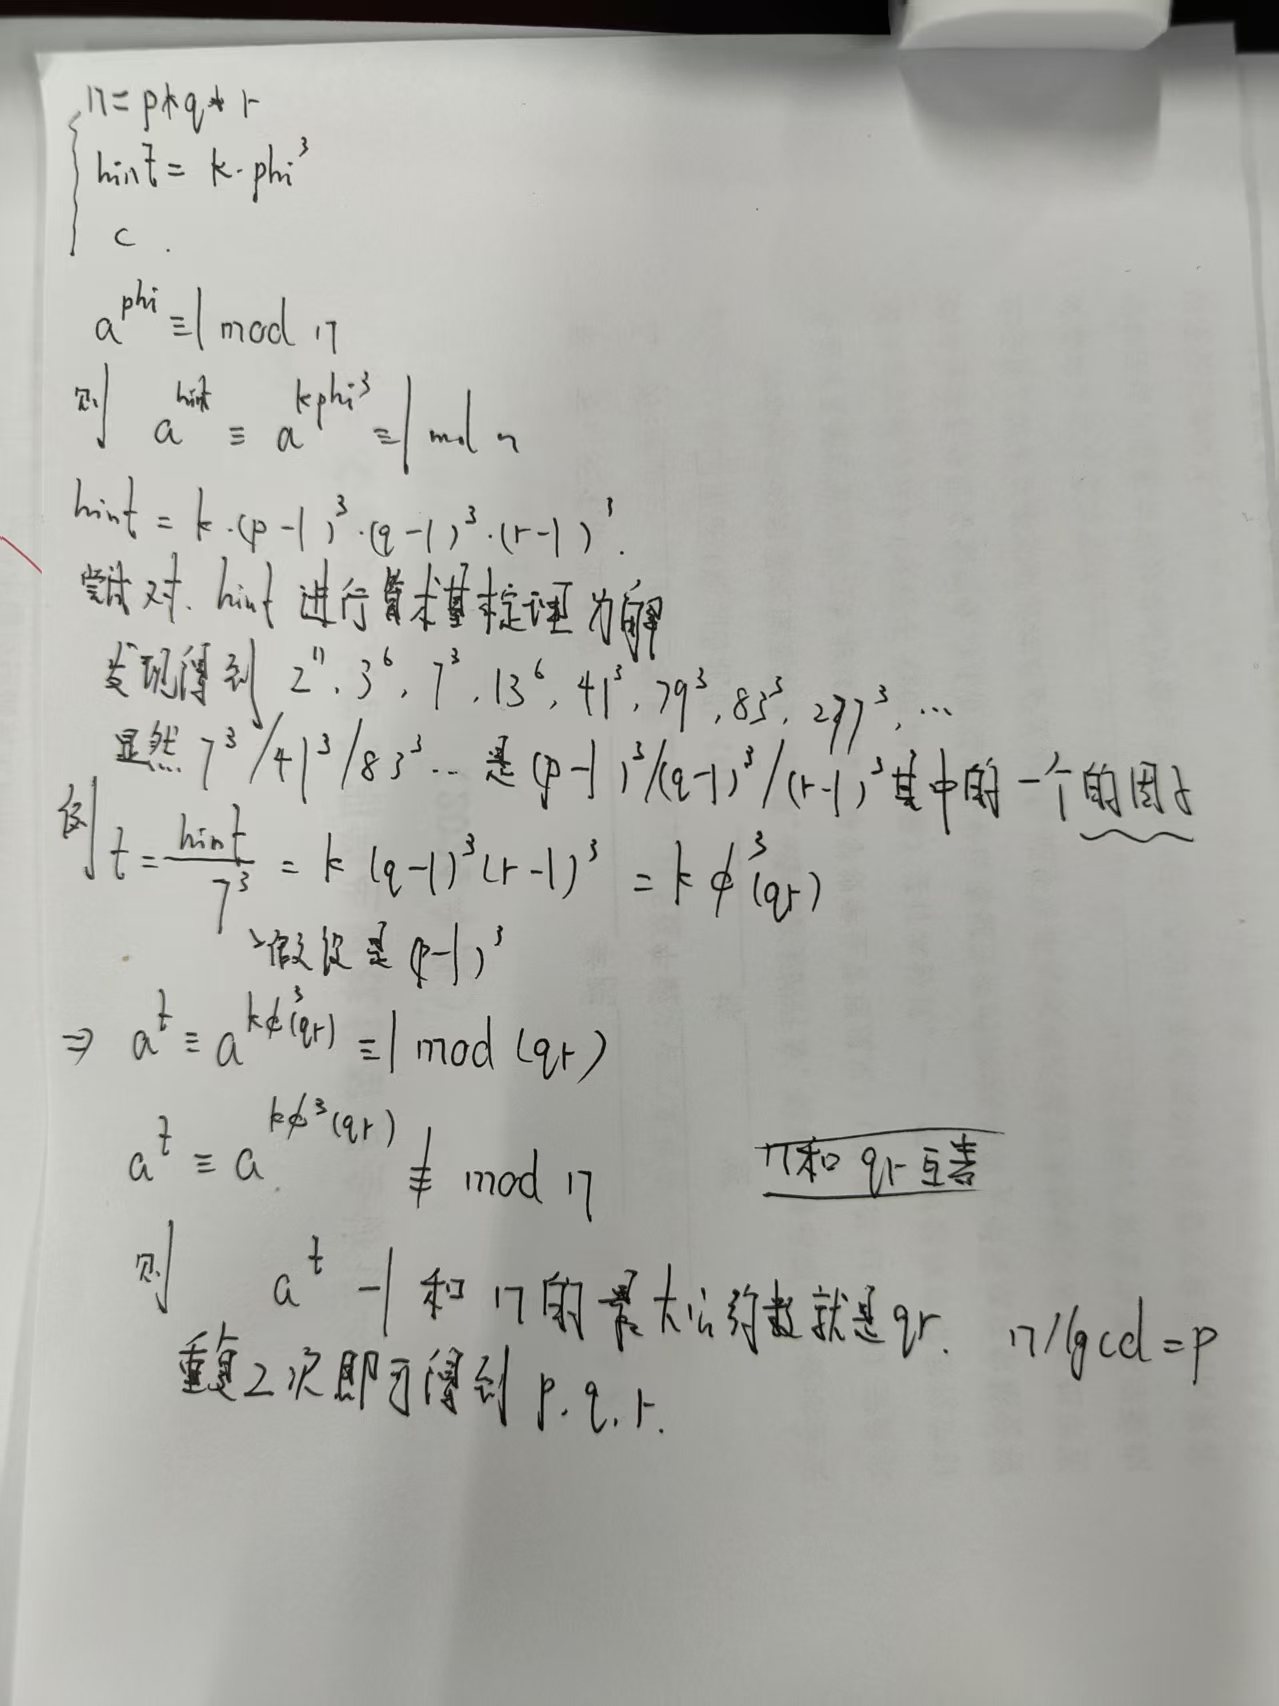 n = p*q*r
hint = k·phi³
c.
a^phi ≡ 1 mod n
则 a^hint ≡ a^kphi³ ≡ 1 mod n
hint = k·(p-1)³·(q-1)³·(r-1)³.
尝试对 hint 进行算术基本定理分解
发现得到 2¹¹, 3⁶, 7³, 13⁶, 41³, 79³, 83³, 277³, ...
显然 7³/41³/83³... 是 (p-1)³/(q-1)³/(r-1)³ 其中的一个的因子
t = hint/7³ = k(q-1)³(r-1)³ = kφ³(qr)
假设是 (p-1)³
⇒ a^t ≡ a^kφ³(qr) ≡ 1 mod (qr)
a^t ≡ a^kφ³(qr) ≢ mod n
n和qr互素
则 a^t - 1 和 n 的最大公约数就是 qr. n/gcd = p
重复2次即可得到 p.q.r.